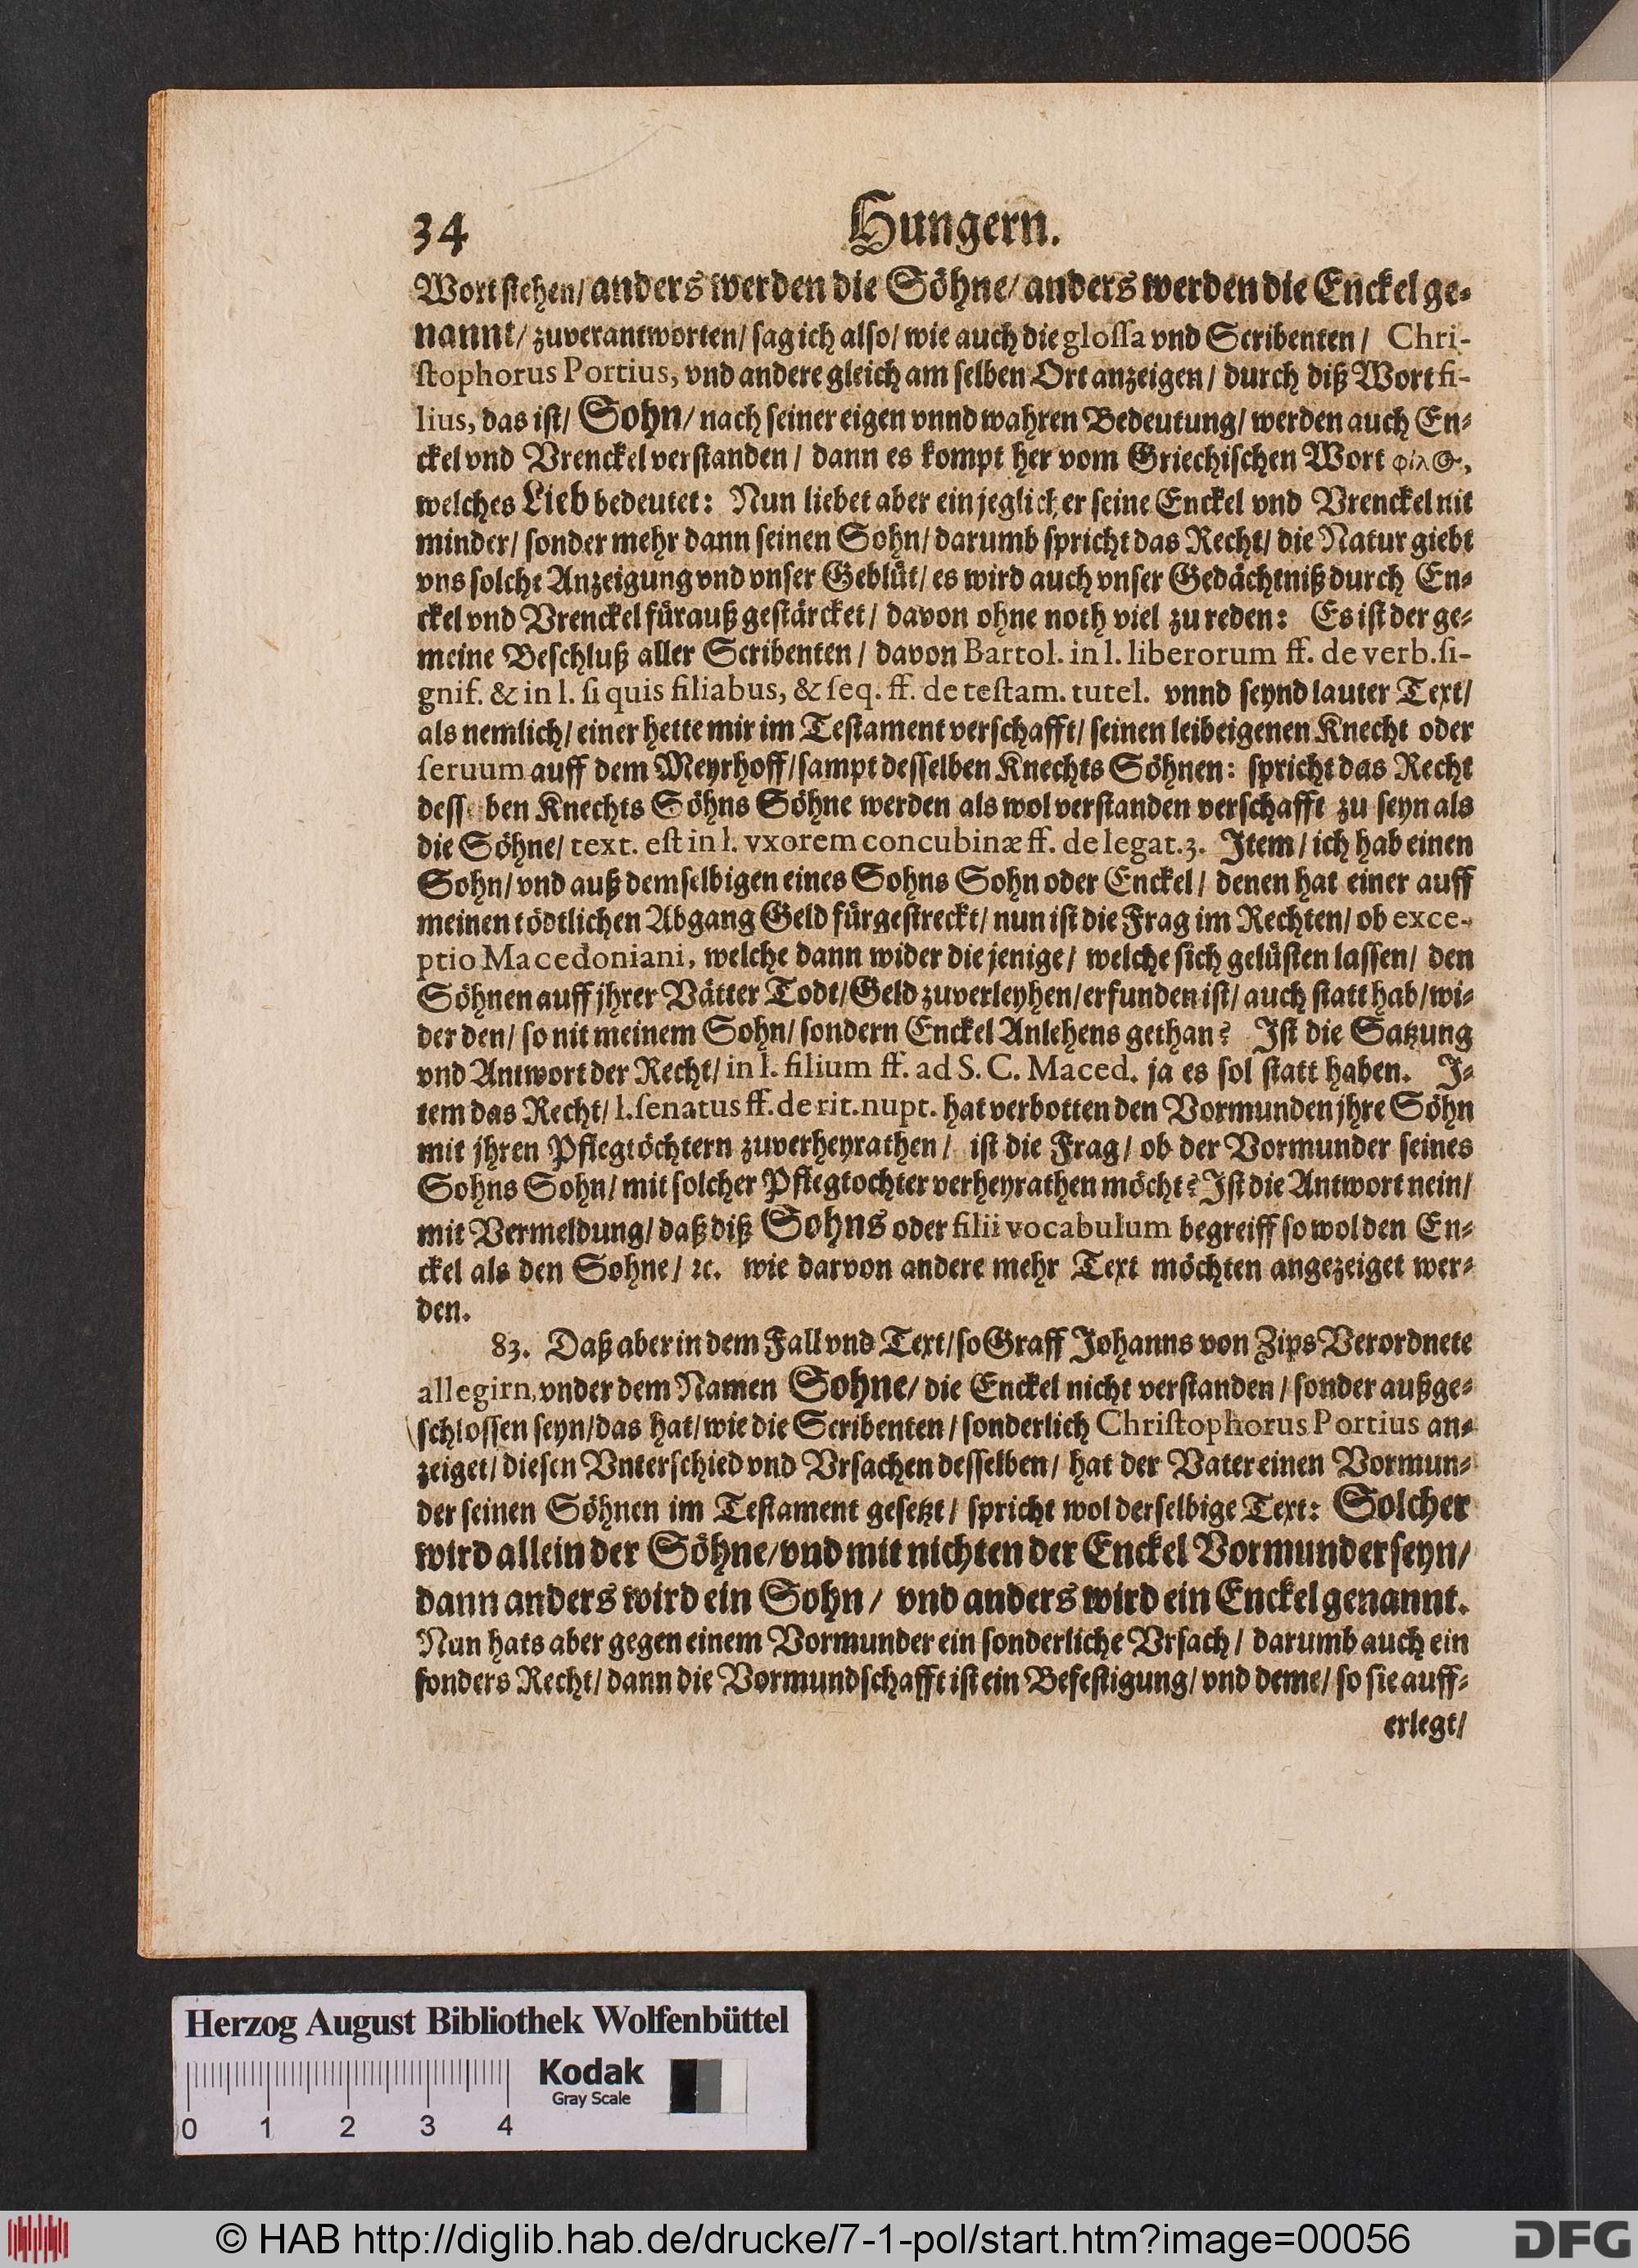 34 Hungern.
Wort stehen/ anders werden die Söhne/ anders werden die Enckel ge-
nannt/ zuverantworten/ sag ich also/ wie auch die glossa vnd Scribenten/ Chri-
stophorus Portius, vnd andere gleich am selben Ort anzeigen/ durch diß Wort fi-
lius, das ist/ Sohn/ nach seiner eigen vnnd wahren Bedeutung/ werden auch En-
ckel vnd Vrenckel verstanden/ dann es kompt her vom Griechischen Wort φίλος,
welches Lieb bedeutet: Nun liebet aber ein jeglicher seine Enckel vnd Vrenckel nit
minder/ sonder mehr dann seinen Sohn/ darumb spricht das Recht/ die Natur giebt
vns solche Anzeigung vnd vnser Geblüt/ es wird auch vnser Gedächtniß durch En-
ckel vnd Vrenckel fürauß gestärcket/ davon ohne noth viel zu reden: Es ist der ge-
meine Beschluß aller Scribenten/ davon Bartol. in l. liberorum ff. de verb. si-
gnif. & in l. si quis filiabus, & seq. ff. de testam. tutel. vnnd seynd lauter Text/
als nemlich/ einer hette mir im Testament verschafft/ seinen leibeigenen Knecht oder
seruum auff dem Meyrhoff/ sampt desselben Knechts Söhnen: spricht das Recht
desselben Knechts Söhns Söhne werden als wol verstanden verschafft zu seyn als
die Söhne/ text. est in l. vxorem concubinæ ff. de legat. 3. Item/ ich hab einen
Sohn/ vnd auß demselbigen eines Sohns Sohn oder Enckel/ denen hat einer auff
meinen tödtlichen Abgang Geld fürgestreckt/ nun ist die Frag im Rechten/ ob exce-
ptio Macedoniani, welche dann wider die jenige/ welche sich gelüsten lassen/ den
Söhnen auff jhrer Vätter Todt/ Geld zuverleyhen/ erfunden ist/ auch statt hab/ wi-
der den/ so nit meinem Sohn/ sondern Enckel Anlehens gethan? Ist die Satzung
vnd Antwort der Recht/ in l. filium ff. ad S. C. Maced. ja es sol statt haben. I-
tem das Recht/ l. senatus ff. de rit. nupt. hat verbotten den Vormunden jhre Söhn
mit jhren Pflegtöchtern zuverheyrathen/ ist die Frag/ ob der Vormunder seines
Sohns Sohn/ mit solcher Pflegtochter verheyrathen möcht? Ist die Antwort nein/
mit Vermeldung/ daß diß Sohns oder filii vocabulum begreiff so wol den En-
ckel als den Sohne/ ꝛc. wie darvon andere mehr Text möchten angezeiget wer-
den.
83. Daß aber in dem Fall vnd Text/ so Graff Johanns von Zips Verordnete
allegirn, vnder dem Namen Sohne/ die Enckel nicht verstanden/ sonder außge-
schlossen seyn/ das hat/ wie die Scribenten/ sonderlich Christophorus Portius an-
zeiget/ diesen Vnterschied vnd Vrsachen desselben/ hat der Vater einen Vormun-
der seinen Söhnen im Testament gesetzt/ spricht wol derselbige Text: Solcher
wird allein der Söhne/ vnd mit nichten der Enckel Vormunder seyn/
dann anders wird ein Sohn/ vnd anders wird ein Enckel genannt.
Nun hats aber gegen einem Vormunder ein sonderliche Vrsach/ darumb auch ein
sonders Recht/ dann die Vormundschafft ist ein Befestigung/ vnd deme/ so sie auff-
erlegt/
Herzog August Bibliothek Wolfenbüttel
Kodak
Gray Scale
0 1 2 3 4
© HAB http://diglib.hab.de/drucke/7-1-pol/start.htm?image=00056
DFG